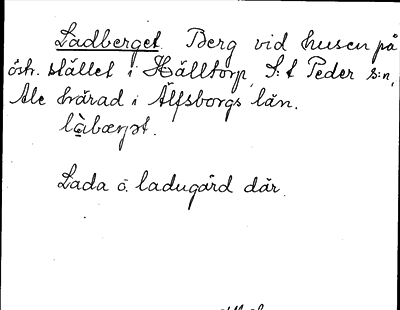 Ladberget. Berg vid husen på
östr. stället i Hälltorp, S:t Peder s:n,
Ale härad i Älfsborgs län.
là̱bæryət.
Lada o. ladugård där.